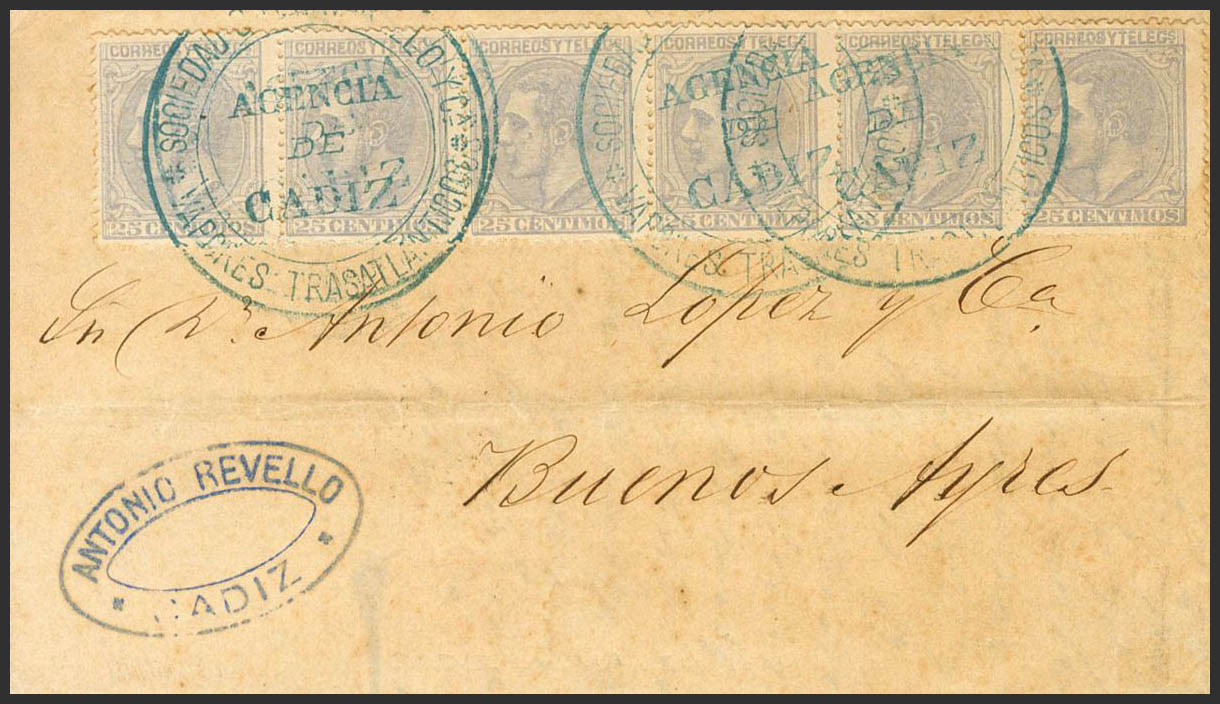 CORREOS Y TELEGS CORREOS Y TELEGS CORREOS Y TELEGS CORREOS Y TELEGS CORREOS Y TELEGS CORREOS Y TELEGS
25 CENTIMOS 25 CENTIMOS 25 CENTIMOS 25 CENTIMOS 25 CENTIMOS 25 CENTIMOS
SOCIEDAD
LOPEZ Y CA
AGENCIA
DE
CADIZ
VAPORES TRASATLANTICOS
AGENCIA
DE
CADIZ
AGENCIA
DE
CADIZ
Sn Dn Antonio Lopez y Ca
Buenos Ayres
ANTONIO REVELLO
CADIZ